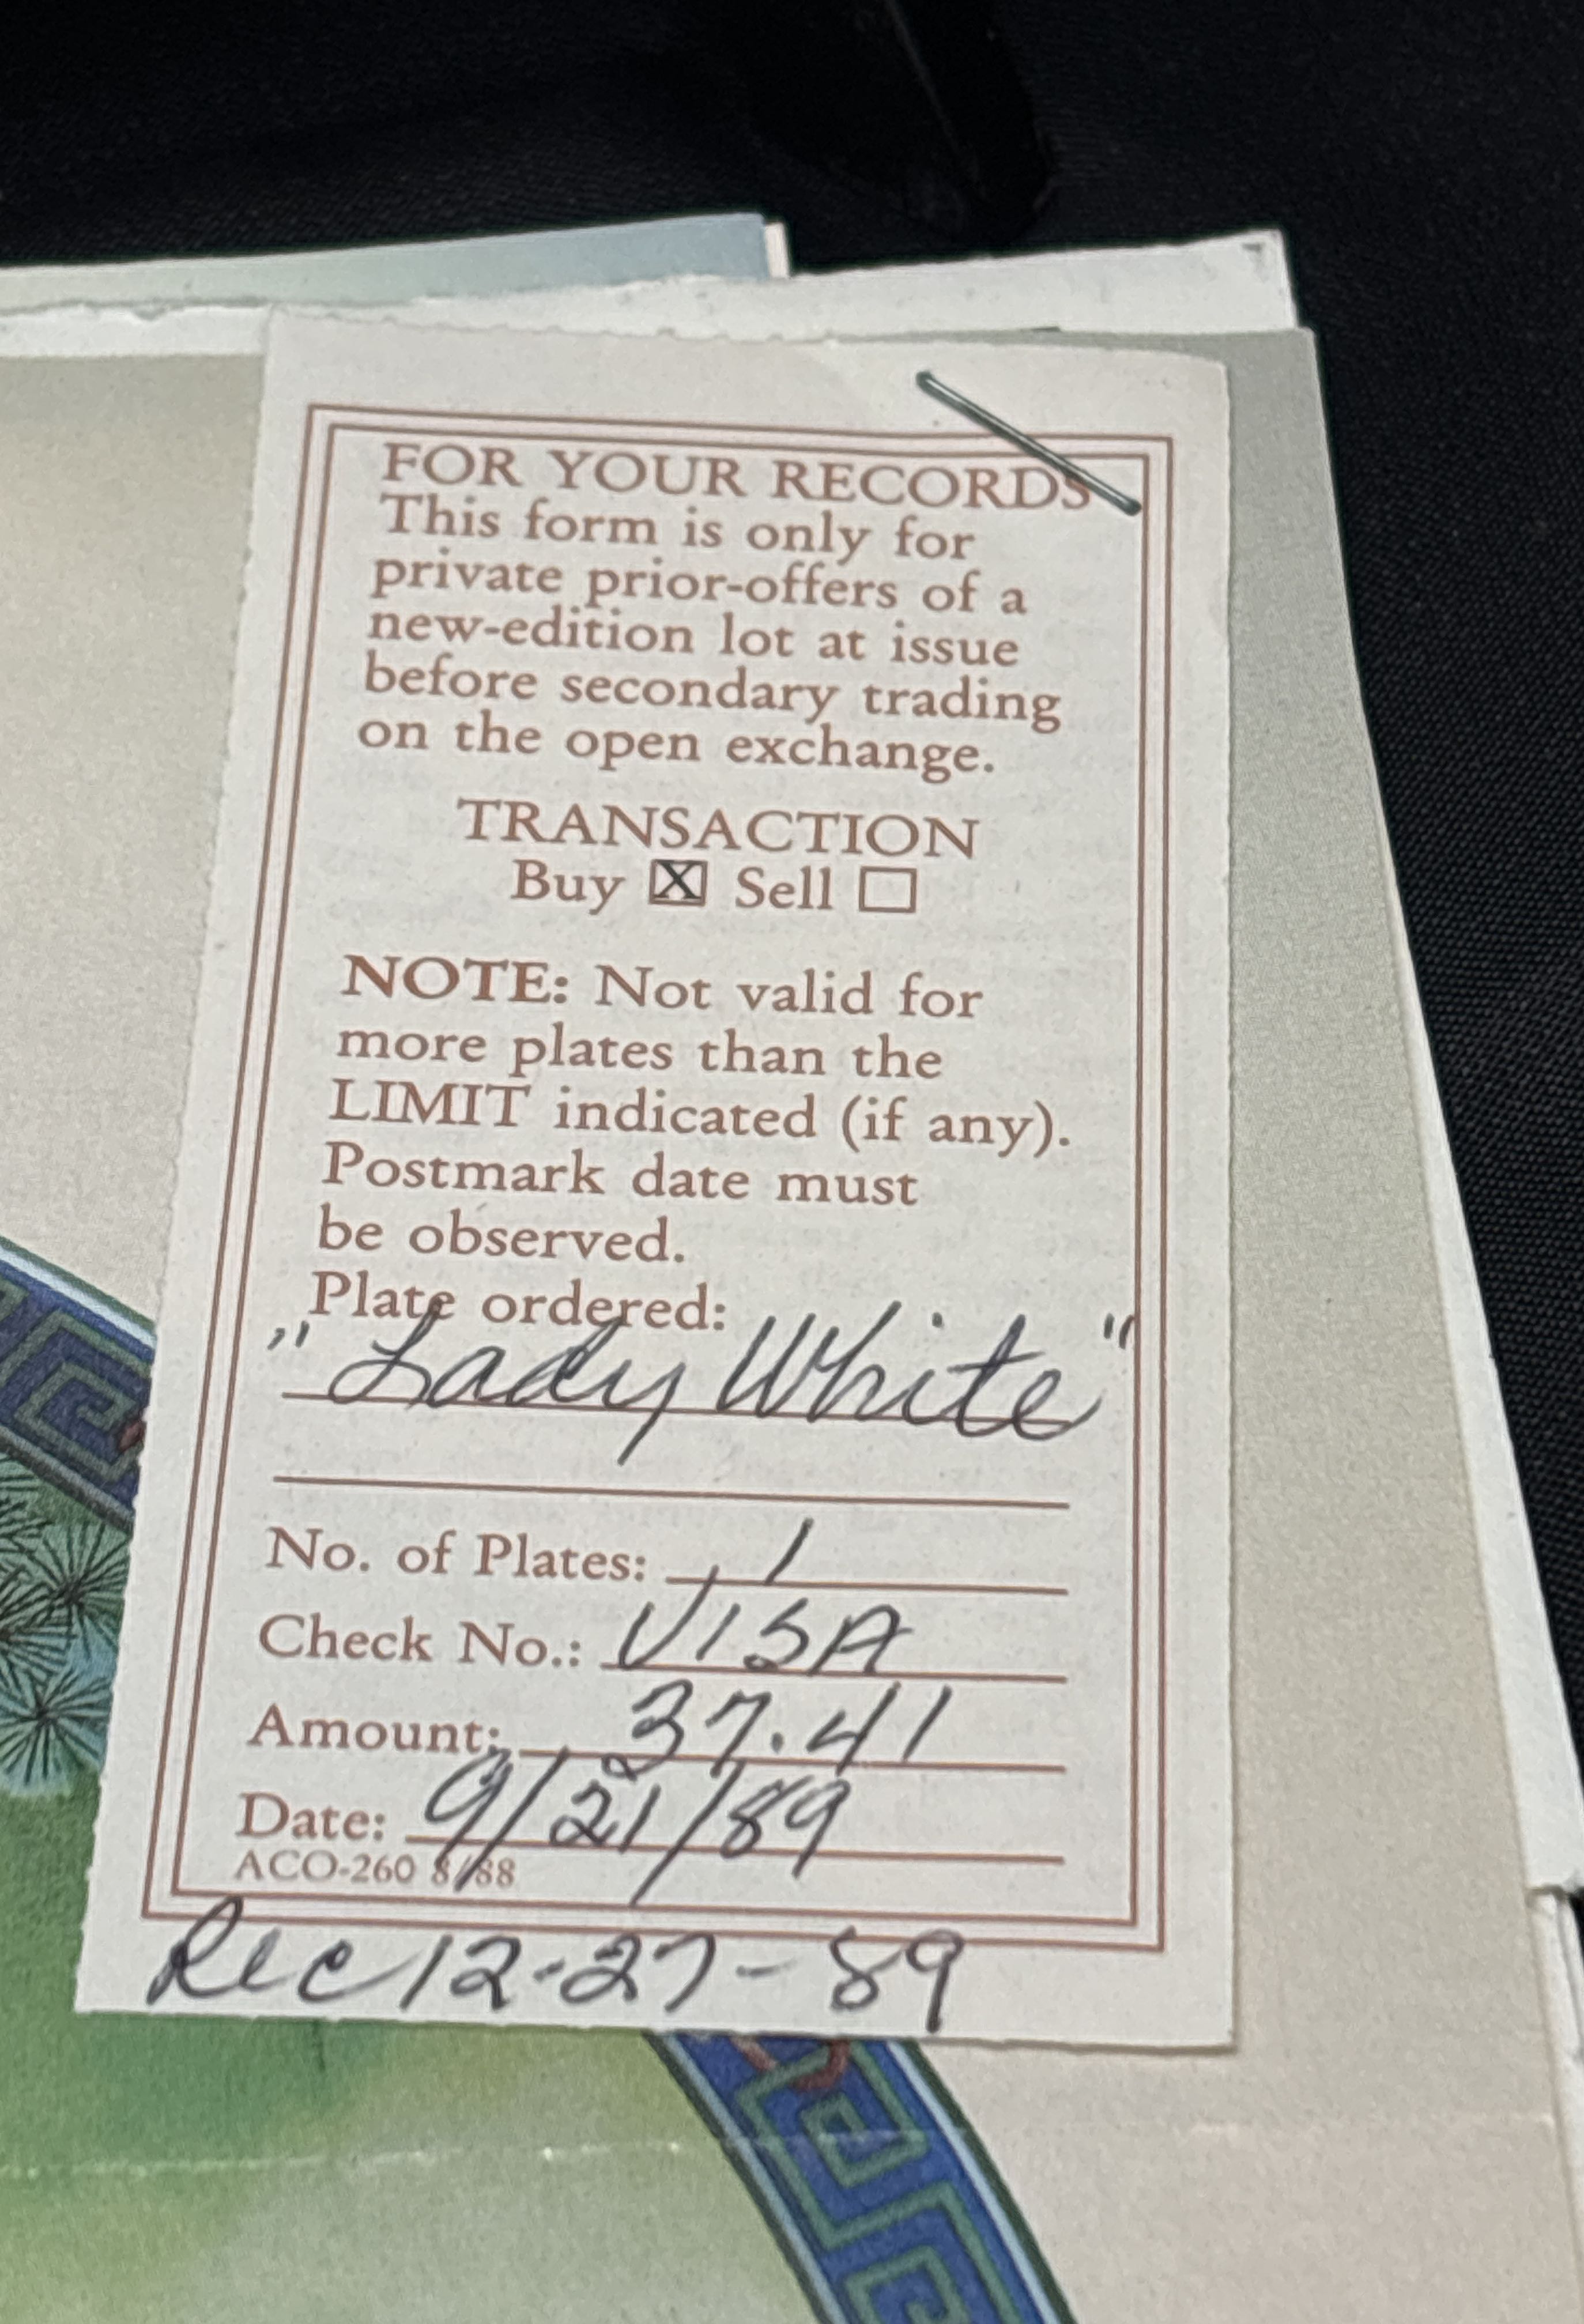 FOR YOUR RECORDS
This form is only for
private prior-offers of a
new-edition lot at issue
before secondary trading
on the open exchange.
TRANSACTION
Buy ☒ Sell ☐
NOTE: Not valid for
more plates than the
LIMIT indicated (if any).
Postmark date must
be observed.
Plate ordered:
"Lady White"
No. of Plates: 1
Check No.: VISA
Amount: 37.41
Date: 9/21/89
ACO-260 8/88
Rec 12-27-89